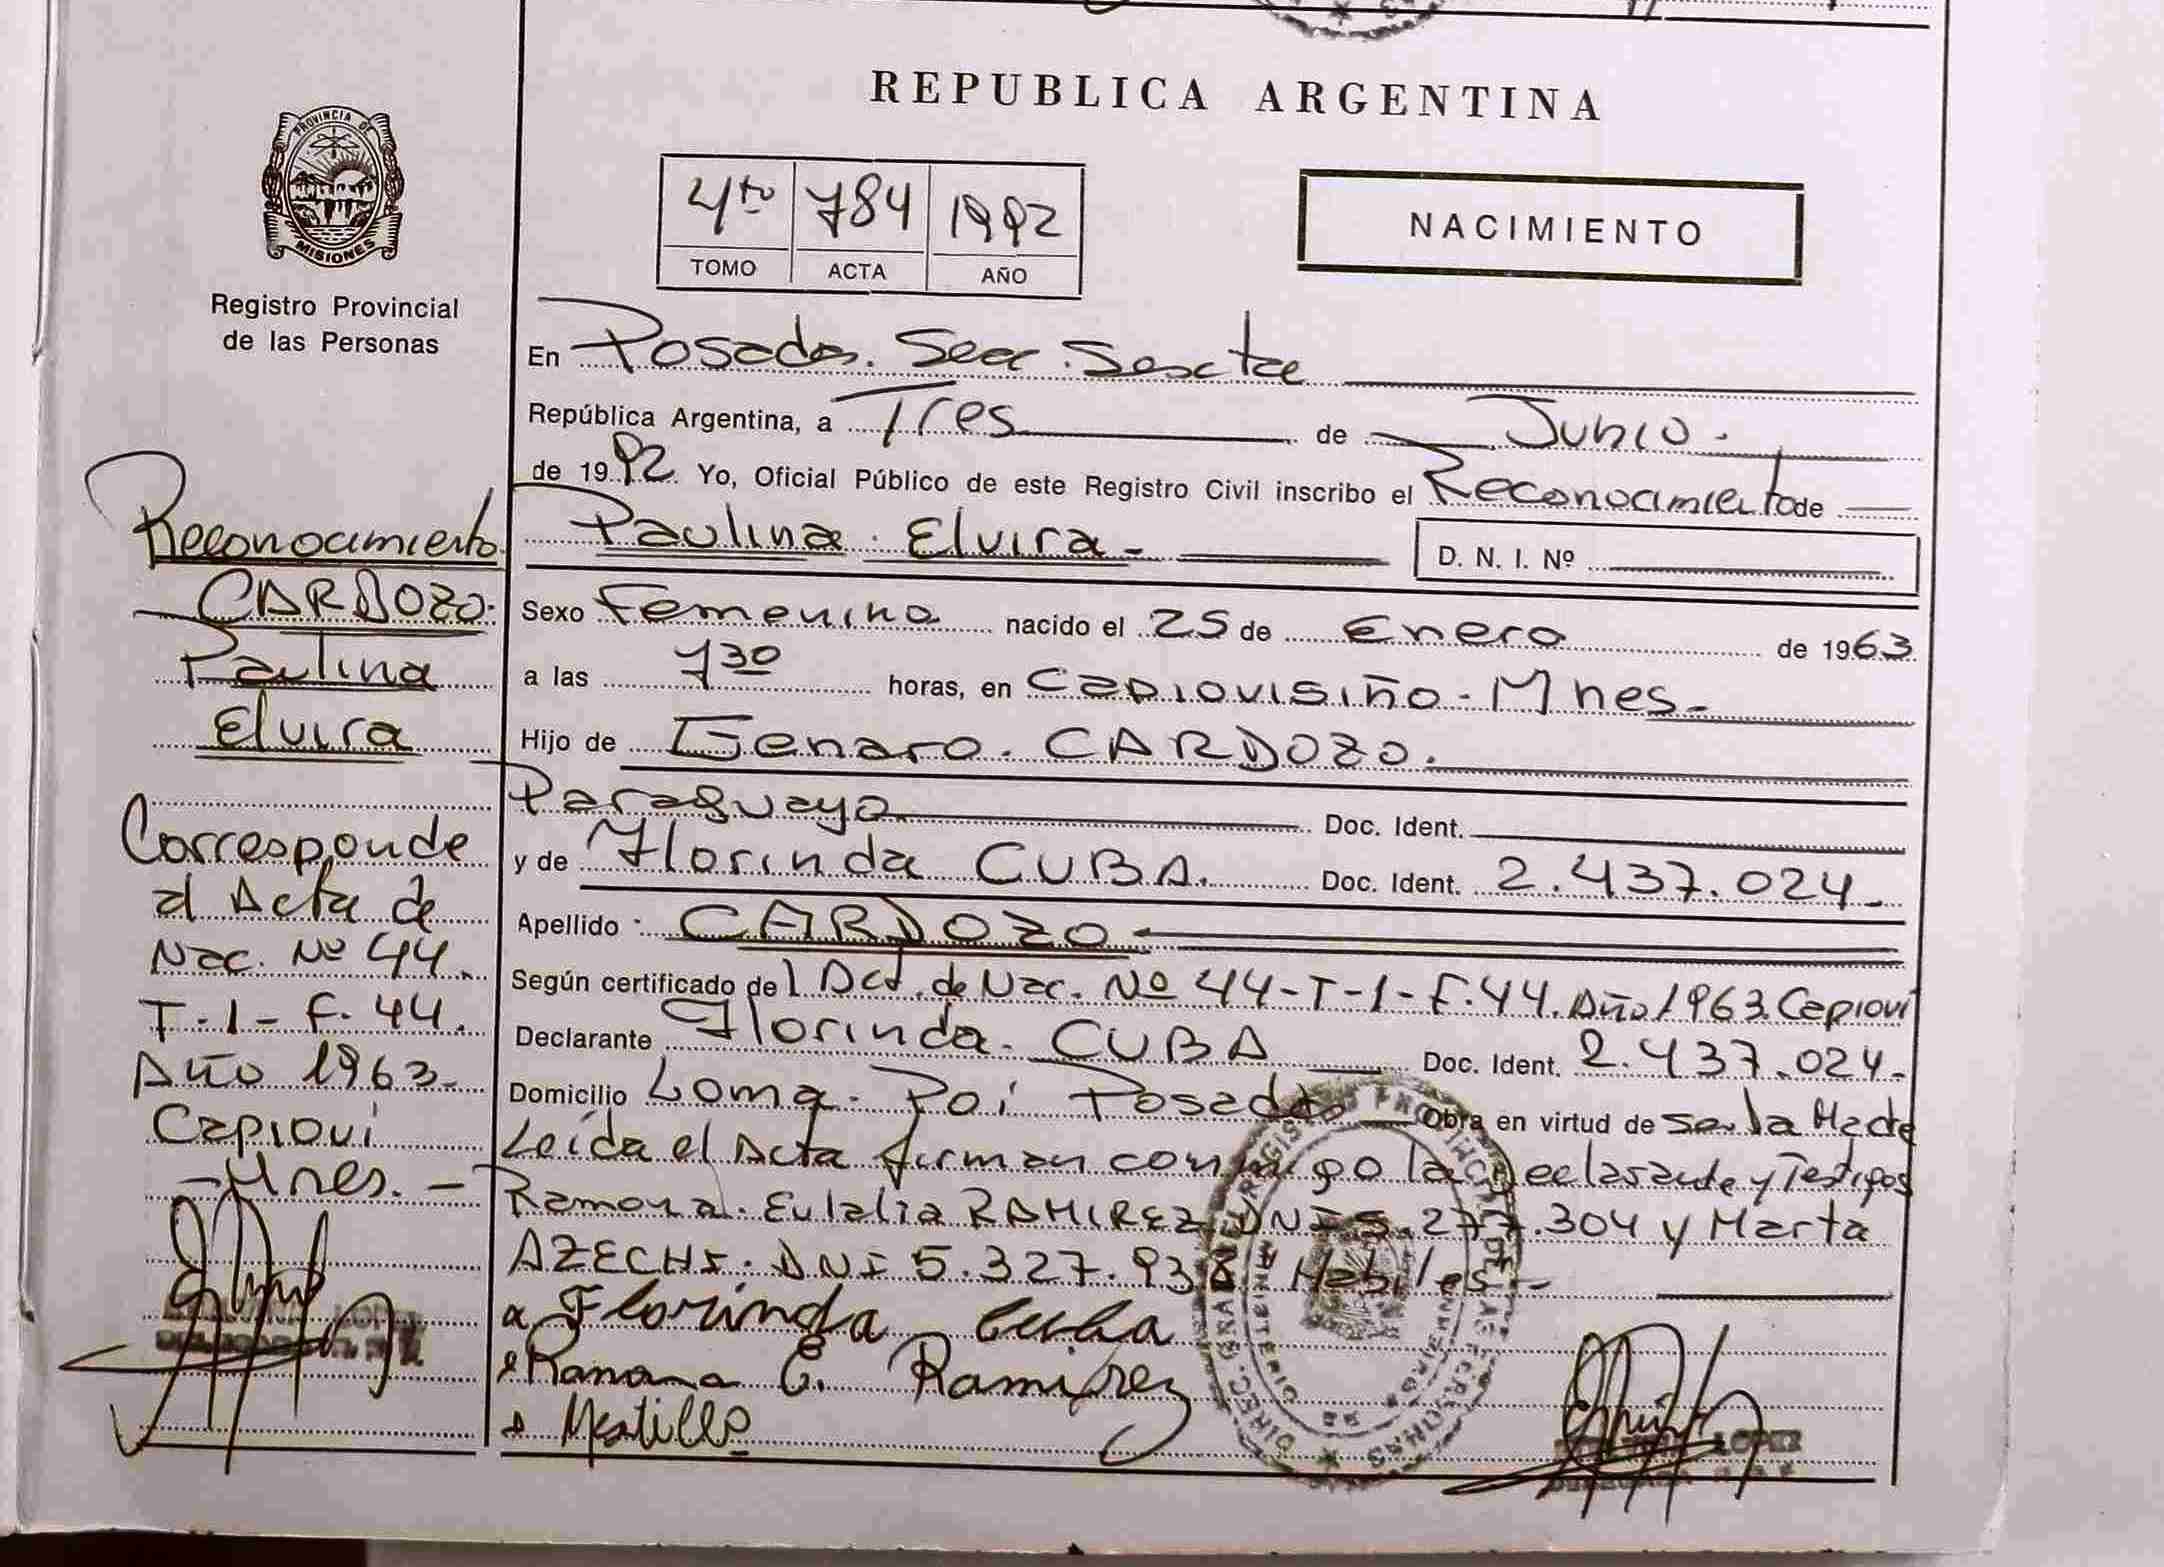 REPUBLICA ARGENTINA
PROVINCIA DE
MISIONES
Registro Provincial
de las Personas
4to 784 1992
TOMO ACTA AÑO
NACIMIENTO
En Posadas. Secc. Sescta
República Argentina, a Tres de Junio.
de 1992. Yo, Oficial Público de este Registro Civil inscribo el Reconocimiento de
Paulina. Elvira- D. N. I. Nº
Sexo Femenino nacido el 25 de Enero de 1963
a las 7 30 horas, en Capiovisiño-Mnes.
Hijo de Genaro. CARDOZO.
Paraguayo Doc. Ident.
y de Florinda CUBA. Doc. Ident. 2.437.024.
Apellido: CARDOZO
Según certificado del Act. de Nac. Nº 44-T-1-F.44. Año 1963. Capiovi
Declarante Florinda. CUBA Doc. Ident. 2.437.024.
Domicilio Loma. Poi Posadas Obra en virtud de Ser la Madre
Leída el Acta firman conmigo la Declarante y Testigos
Ramona. Eulalia RAMIREZ DNI 5.277.304 y Marta
AZECHI. DNI 5.327.938 Habiles-
Florinda Cuba
Ramona E. Ramirez
Reconocimiento
CARDOZO.
Paulina
Elvira
Corresponde
al Acta de
Nac. Nº 44.
T-1-F. 44.
Año 1963.
Capiovi
-Mnes.-
LOPEZ